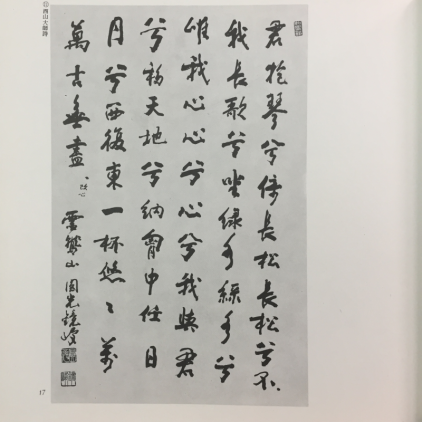 西山大師詩
君抱琴兮倚長松長松兮不
我長歌兮坐綠水綠水兮
唯我心心兮心兮我與君
兮天地兮納胸中任日
月兮西復東一杯悠々萬
萬古無盡
雲鶴山圓光鏡峰
17